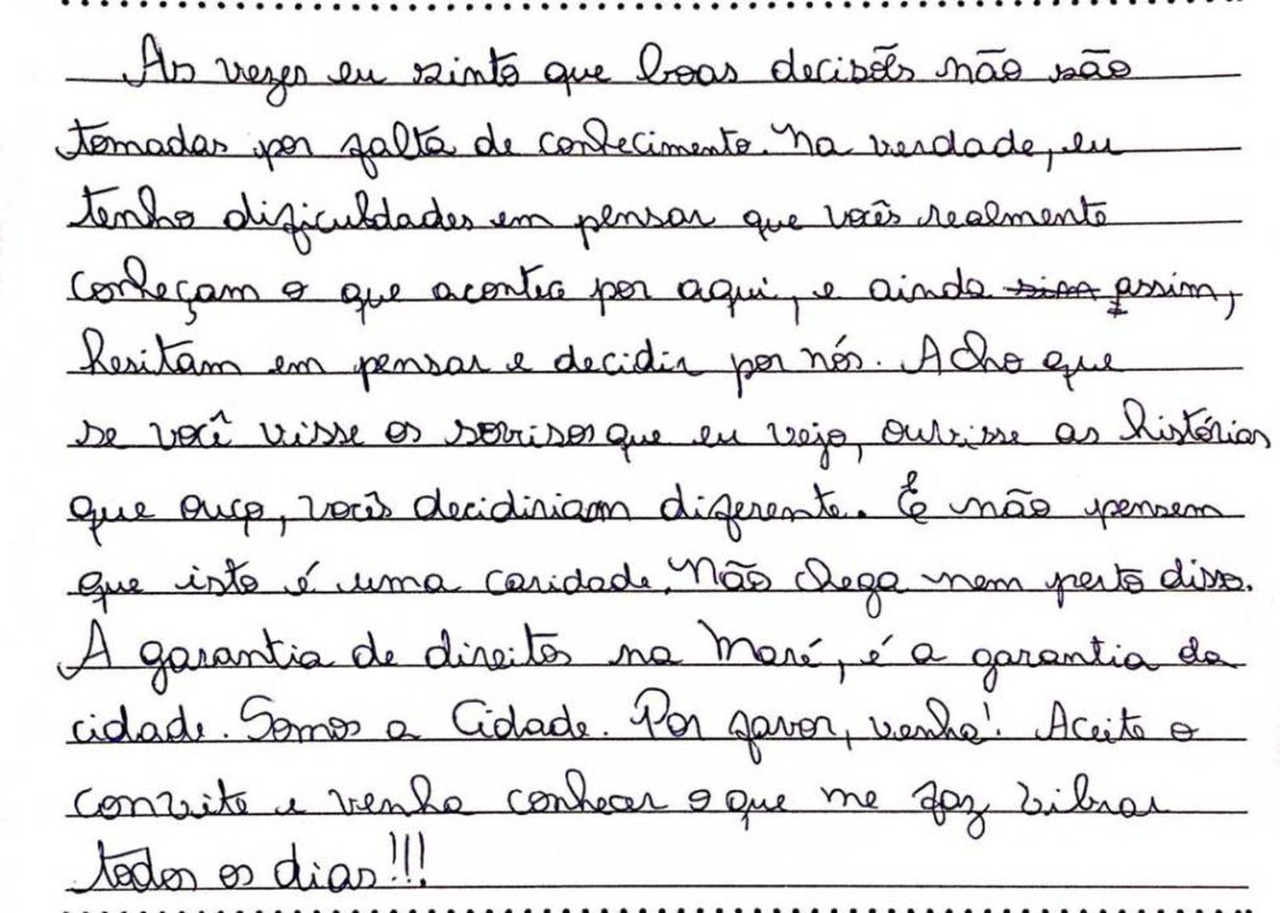 As vezes eu sinto que boas decisões não são
tomadas por falta de conhecimento. Na verdade, eu
tenho dificuldades em pensar que vocês realmente
conheçam o que acontece por aqui, e ainda assim,
hesitam em pensar e decidir por nós. Acho que
se você visse os sorrisos que eu vejo, ouvisse as histórias
que ouço, vocês decidiriam diferente. E não pensem
que isto é uma caridade. Não chega nem perto disso.
A garantia de direitos na Maré, é a garantia da
cidade. Somos a Cidade. Por favor, venha! Aceite o
convite e venha conhecer o que me faz vibrar
todos os dias!!!